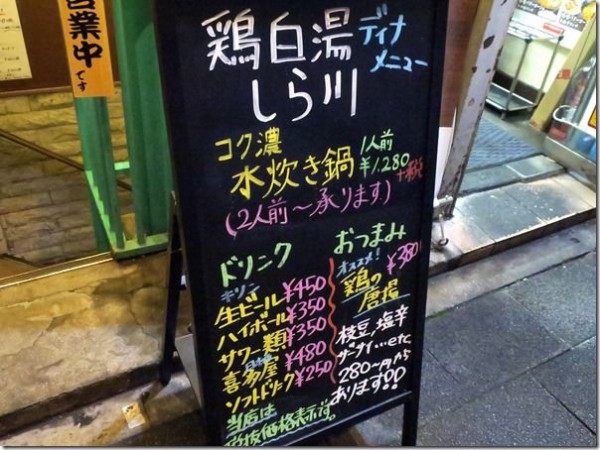 営業中
です
鶏白湯
ディナ
メニュー
しら川
コク濃
水炊き鍋
1人前
¥1,280
+税
(2人前〜承ります)
ドリンク
キリン
生ビール ¥450
ハイボール ¥350
サワー類 ¥350
日本酒
喜多屋 ¥480
ソフトドリンク ¥250
当店は
税抜価格表示です。
おつまみ
オススメ!
¥380
鶏の
唐揚
枝豆,塩辛
ザーサイ…etc
280〜円から
あります!!